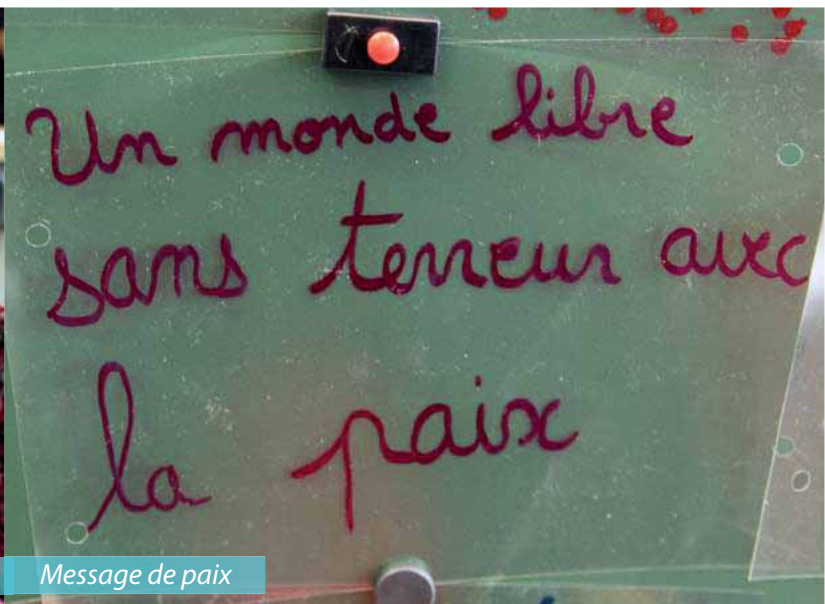 Un monde libre
sans terreur avec
la paix
Message de paix